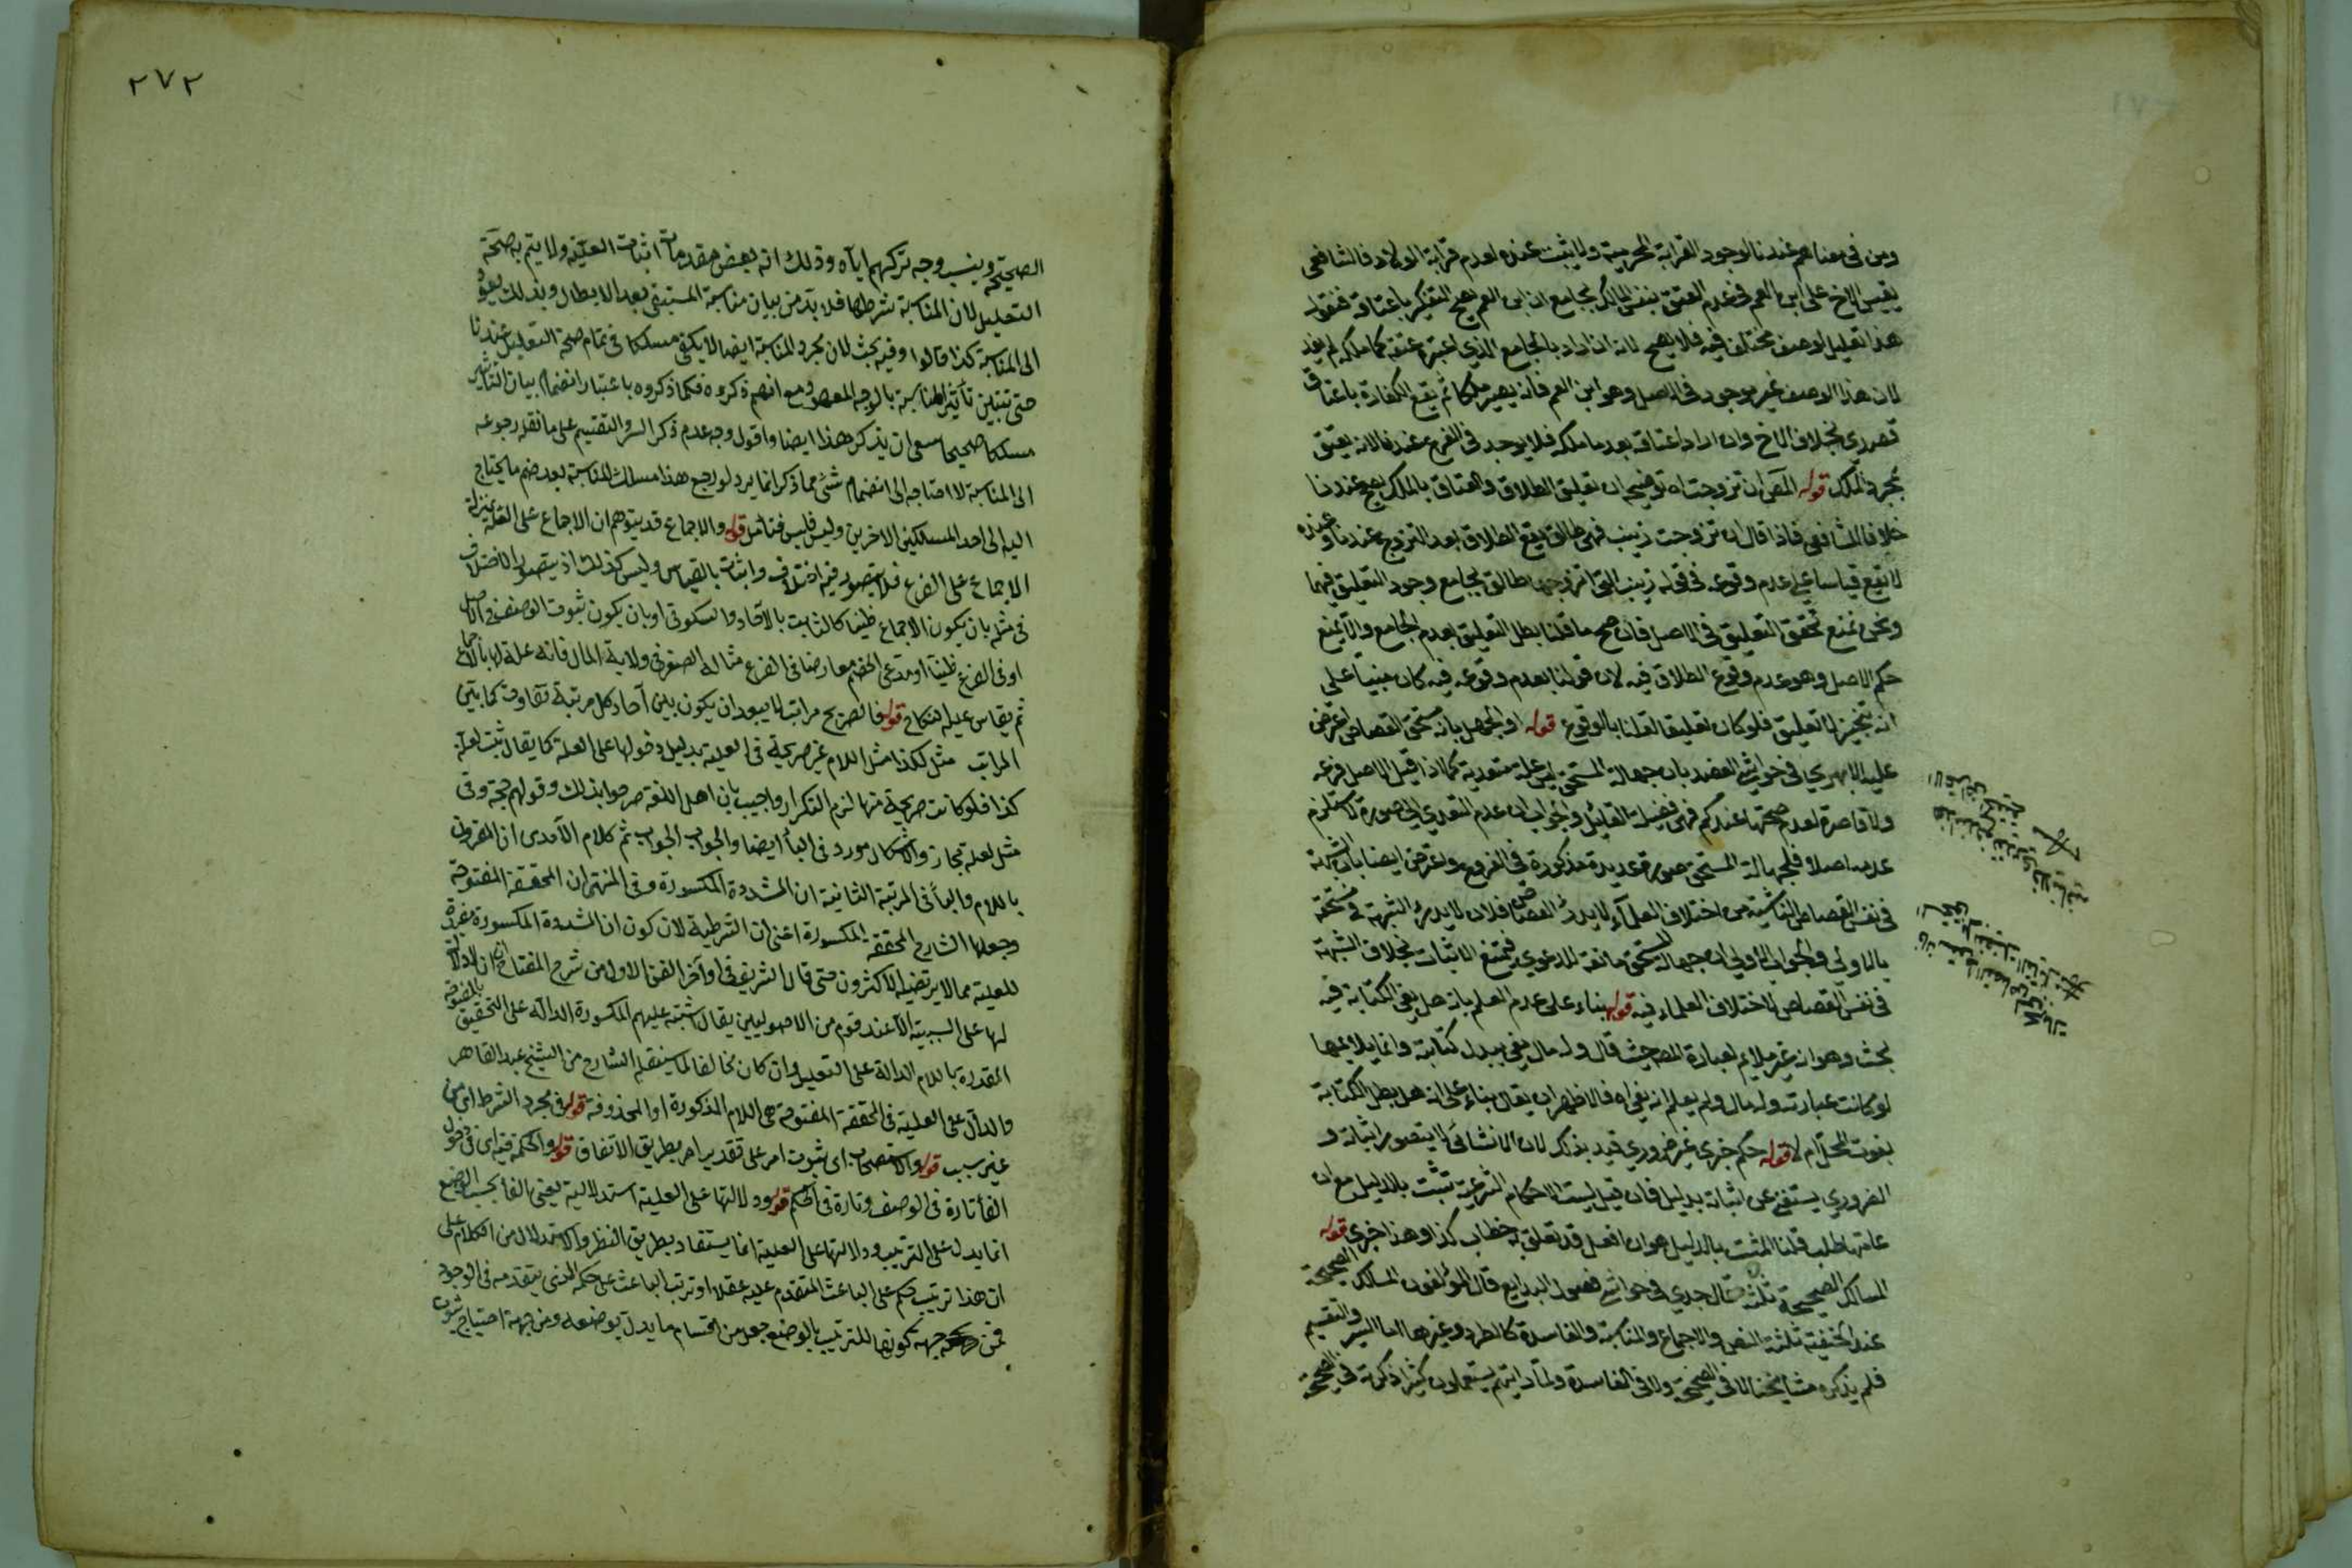 ومن في معناهم عندنا لوجود القرابة المحرمية ولا يثبت عنده لعدم قرابة الولاد فالشافعي
يقيس الاخ على ابن العم في عدم العتق بنفس الملك بجامع ان ابن العم يصح التكفير باعتاقه فنقول
هذا تعليل لوصف مختلف فيه فلا يصح لانه ان اراد بالجامع الذي اعتبره عتقه كما ملكه لم يفد
لان هذا الوصف غير موجود في الاصل وهو ابن العم فانه يصير ملكا ثم يقع الكفارة باعتاق
قصدي بخلاف الاخ وان اراد اعتاقه بعد ما ملكه فلا يوجد في الفرع عندنا لانه يعتق
بمجرد الملك قوله المص ان تزوجت اه توضيحه ان تعليق الطلاق والعتاق بالملك يصح عندنا
خلافا للشافعي فاذا قال ان تزوجت زينب فهي طالق يقع الطلاق بعد التزوج عندنا وعنده
لا يقع قياسا على عدم وقوعه في قوله زينب التي اتزوجها طالق بجامع وجود التعليق فيهما
ونحن نمنع تحقق التعليق في الاصل فان صح ما قلنا بطل التعليق لعدم الجامع والا يمنع
حكم الاصل وهو عدم وقوع الطلاق فيه لان قولنا بعدم وقوعه فيه كان مبنيا على
انه تنجيز لا تعليق فلو كان تعليقا لقلنا بالوقوع قوله او لجهل بانه مستحق القصاص اعترض
عليه الابهري في حواشي العضد بان جهالة المستحق ليس علة متعدية كما اذا قيل الاصل فرعه
ولا قاصرة لعدم صحتها عندكم فهي القائل والجواب ان عدم التعدي الى صورة لا يستلزم
عدمه اصلا فلجهالة المستحق صورة عديدة مذكورة في الفروع واعترض ايضا بان الشبهة
في نفس القصاص الناشية من اختلاف العلماء لا يدرؤ القصاص فلان لا يدرؤ الشبهة في مستحقه
بالاولى والجواب الاولى ان جهالة المستحق مانعة للدعوى فيمتنع الاثبات بخلاف الشبهة
في نفس القصاص لاختلاف العلماء فيه قوله بناء على عدم العلم بانه هل يفي الكتابة فيه
بحث وهو انه غير ملايم لعبارة المص حيث قال وله مال يفي ببدل كتابته وانما يلايمها
لو كانت عبارته وله مال ولم يعلم انه يفي اه فالاظهر ان يقال بناء على انه هل يبطل الكتابة
بفوت المحل ام لا قوله حكم خبري غير ضروري قيد بذلك لان الانشائي لا يتصور اثباته و
الضروري يستغني عن اثباته بدليل فان قيل ليست الاحكام الشرعية تثبت بالدليل مع ان
عامتها طلب قلنا المثبت بالدليل هو ان افعل قد تعلق به خطاب كذا وهذا خبري قوله
المسالك الصحيحة ثلثة قال جدي في حواشي فصول البدايع قال المؤلفون المسالك الصحيحة
عند الحنفية ثلثة النص والاجماع والمناسبة والفاسدة كالطرد وغيرها اما السبر والتقسيم
فلم يذكره مشايخنا لا في الصحيحة ولا في الفاسدة ولما رايتهم يستعملون كثيرا ذكرته في الصحيحة
٢٧٢
الصحيحة وينسب وجه تركهم اياه وذلك انه بعض مقدمات اثبات العلية ولا يتم به صحة
التعليل لان المناسبة شرطها فلا بد من بيان مناسبة المستبقى بعد الابطال وبذلك يعود
الى المناسبة كذا قالوا وفيه بحث لان مجرد المناسبة ايضا لا يكفي مسلكا في تمام صحة التعليل عندنا
حتى تتبين تأثير المناسبة بالوجه المعهود مع انهم ذكروه فكما ذكروه باعتبار انضمام بيان التأثير
مسلكا صحيحا سعى ان يذكر هذا ايضا واقول وجه عدم ذكر السبر والتقسيم على ما نقله رجوعه
الى المناسبة لا احتاجه الى انضمام شئ مما ذكر انما يرد لو رجع هذا مسلك المناسبة بعد ضم ما يحتاج
اليه الى احد المسلكين الاخرين وليس فليس فتأمل قوله والاجماع قد يتوهم ان الاجماع على العلة بمنزلة
الاجماع على الفرع فلا يتصور فيه اختلاف واثبات بالقياس وليس كذلك اذ يتصور الاختلاف
في مثله بان يكون الاجماع ظنيا كالثابت بالآحاد والسكوتي او بان يكون ثبوت الوصف في الاصل
او في الفرع ظنيا او يدعي الخصم معارضا في الفرع مثاله الصغر في ولاية المال فانه علة لها بالاجماع
ثم يقاس عليه النكاح قوله فالصريح مراتب لا يبعد ان يكون بين آحاد كل مرتبة تفاوت كما بين
المراتب مثل لكذا مثل اللام غير صريحة في العلية بدليل دخولها على العلة كما يقال ثبت لعلة
كذا فلو كانت صريحة منها لزم التكرار واجيب بان اهل اللغة صرحوا بذلك وقولهم حجة وفي
مثل لعلة مجاز والاشكال مورد في الباء ايضا والجواب الجواب ثم كلام الآمدي ان المقرون
باللام والباء في المرتبة الثانية ان المشددة المكسورة وفي المنتهى ان المخففة المفتوحة
وجعلها الشارح المخففة المكسورة اعني ان الشرطية لان كون ان المشددة المكسورة مفيدة
للعلية مما لا يرتضيه الاكثرون حتى قال الشريف في اواخر الفن الاول من شرح المفتاح ان لا دلالة
لها على السببية الا عند قوم من الاصوليين يقال اشتبه عليهم المكسورة الدالة على التحقيق بالمفتوحة
المقدرة باللام الدالة على التعليل وان كان مخالفا لما سينقله الشارح من الشيخ عبد القاهر
والدال على العلية في المخففة المفتوحة هي اللام المذكورة او المحذوفة قوله في مجرد الشرط اي من
غير سبب قوله والاستصحاب اي ثبوت امر على تقدير امر بطريق الاتفاق قوله والحكمة فيه اي في دخول
الفاء تارة في الوصف وتارة في الحكم قوله ودلالتها على العلية استدلالية يعني الفاء بحسب الوضع
انما يدل على الترتيب ودلالتها على العلية انما يستفاد بطريق النظر والاستدلال من الكلام على
ان هذا ترتيب حكم على الباعث المتقدم عليه عقلا او ترتب الباعث على حكمه الذي يتقدمه في الوجود
فمن جهة كونها للترتيب بالوضع جعل من اقسام ما يدل بوضعه ومن جهة احتياج ثبوت